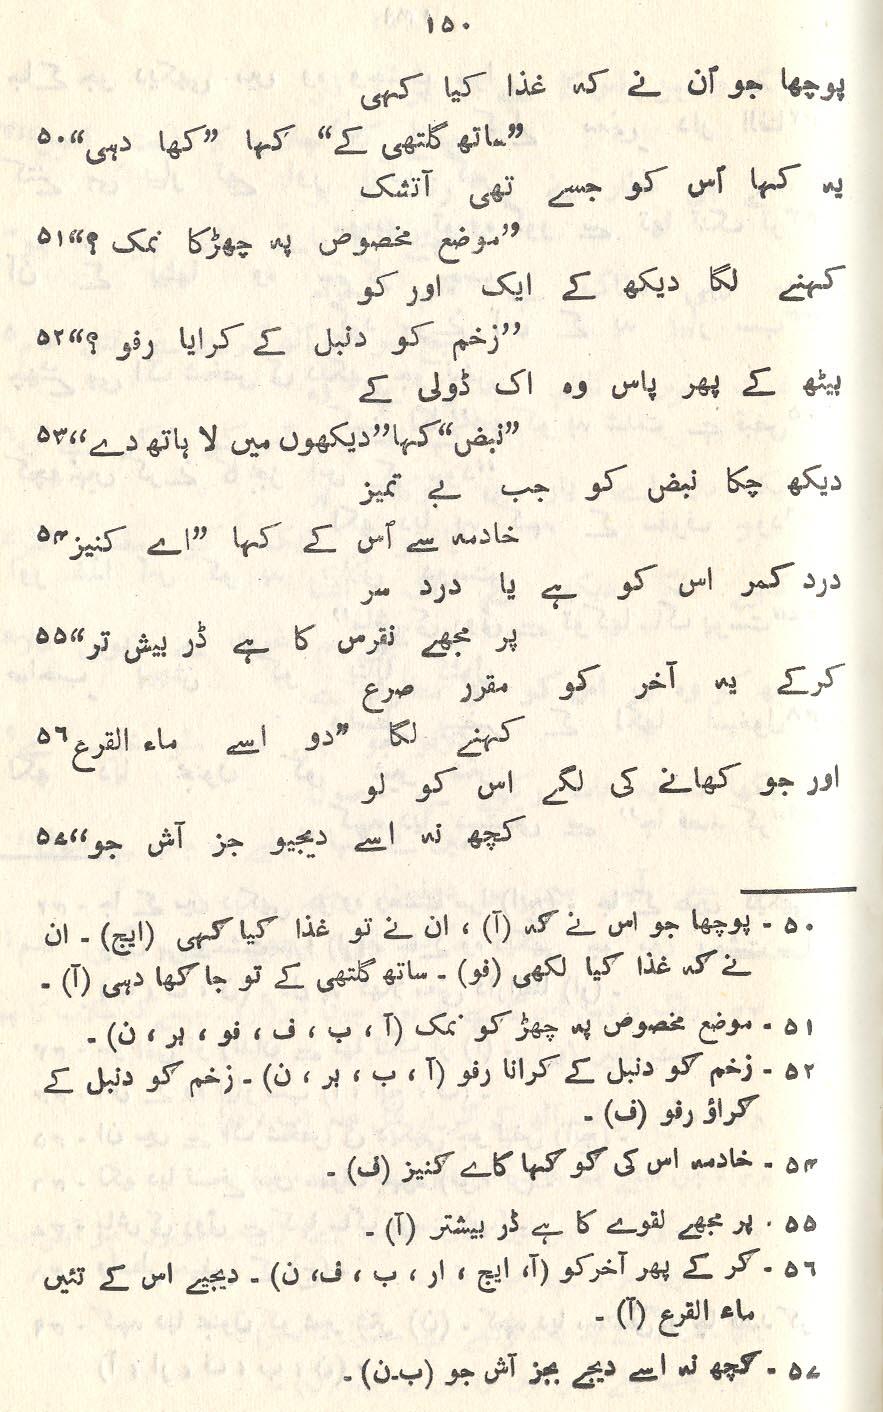 ۱۵۰
پوچھا جو اُن نے کہ غذا کیا کہی
”ساتھ گلتھی کے“ کہا ”کھا دہی“ ۵۰
یہ کہا اُس کو جسے تھی آتشک
”موضع مخصوص پہ چھڑکا نمک ؟“ ۵۱
کہنے لگا دیکھ کے ایک اور کو
”زخم کو دنبل کے کرایا رفو ؟“ ۵۲
بیٹھ کے پھر پاس وہ اک ڈولی کے
”نبض“ کہا ”دیکھوں میں لا ہاتھ دے“ ۵۳
دیکھ چکا نبض کو جب بے تمیز
خادمہ سے اُس کے کہا ”اے کنیز ۵۴
درد کمر اس کو ہے یا درد سر
پر مجھے نقرس کا ہے ڈر بیش تر“ ۵۵
کرکے یہ آخر کو مقرر صرع
کہنے لگا ”دو اسے ماء القرع ۵۶
اور جو کھانے کی لگے اس کو لو
کچھ نہ اسے دیجیو جز آش جو“ ۵۷
۵۰ - پوچھا جو اس نے کہ (آ) ، ان نے تو غذا کیا کہی (ایچ) - ان
نے کہ غذا کیا لکھی (فو) - ساتھ گلتھی کے تو جا کھا دہی (آ) -
۵۱ - موضع مخصوص پہ چھڑ کو نمک (آ ، ب ، ف ، فو ، بر ، ن) -
۵۲ - زخم کو دنبل کے کرانا رفو (آ ، ب ، بر ، ن) - زخم کو دنبل کے
کراؤ رفو (ف) -
۵۴ - خادمہ اس کی کو کہا کاے کنیز (ف) -
۵۵ - پر مجھے لقوے کا ہے ڈر بیشتر (آ) -
۵۶ - کر کے پھر آخرکو (آ، ایچ ، ار ، ب ، ف، ن) - دیجیے اس کے تئیں
ماء القرع (آ) -
۵۷ - کچھ نہ اسے دیجے بجز آش جو (ب-ن) -